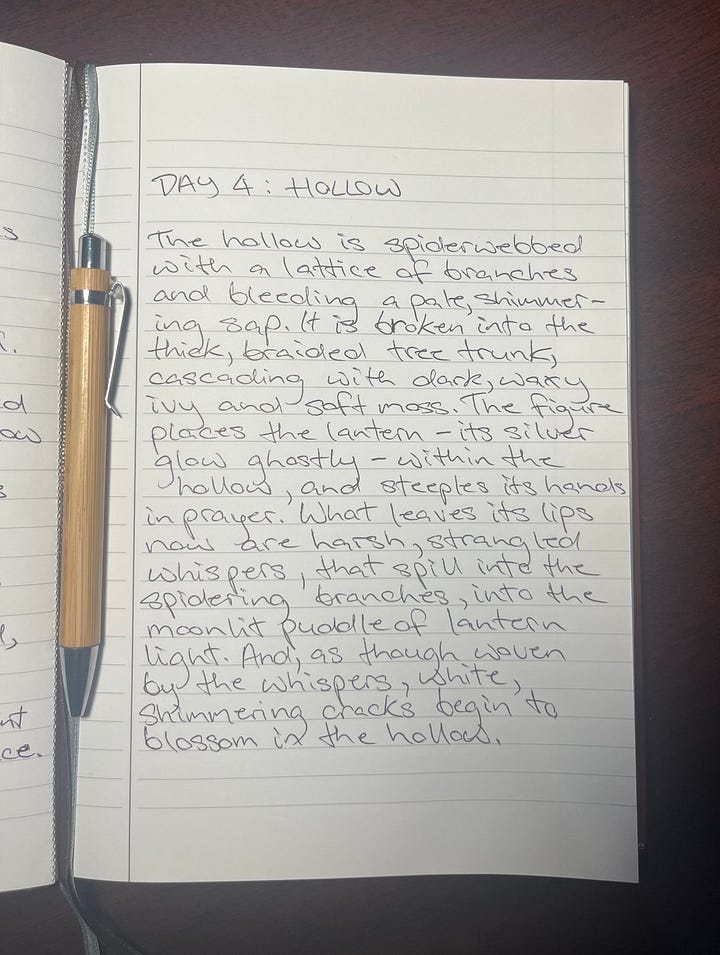 s
.
d
ow
s
,
nt
ce.
DAY 4: HOLLOW
The hollow is spiderwebbed
with a lattice of branches
and bleeding a pale, shimmer-
ing sap. It is broken into the
thick, braided tree trunk,
cascading with dark, waxy
ivy and soft moss. The figure
places the lantern – its silver
glow ghostly – within the
hollow, and steeples its hands
in prayer. What leaves its lips
now are harsh, strangled
whispers, that spill into the
spidering branches, into the
moonlit puddle of lantern
light. And, as though woven
by the whispers, white,
shimmering cracks begin to
blossom in the hollow.